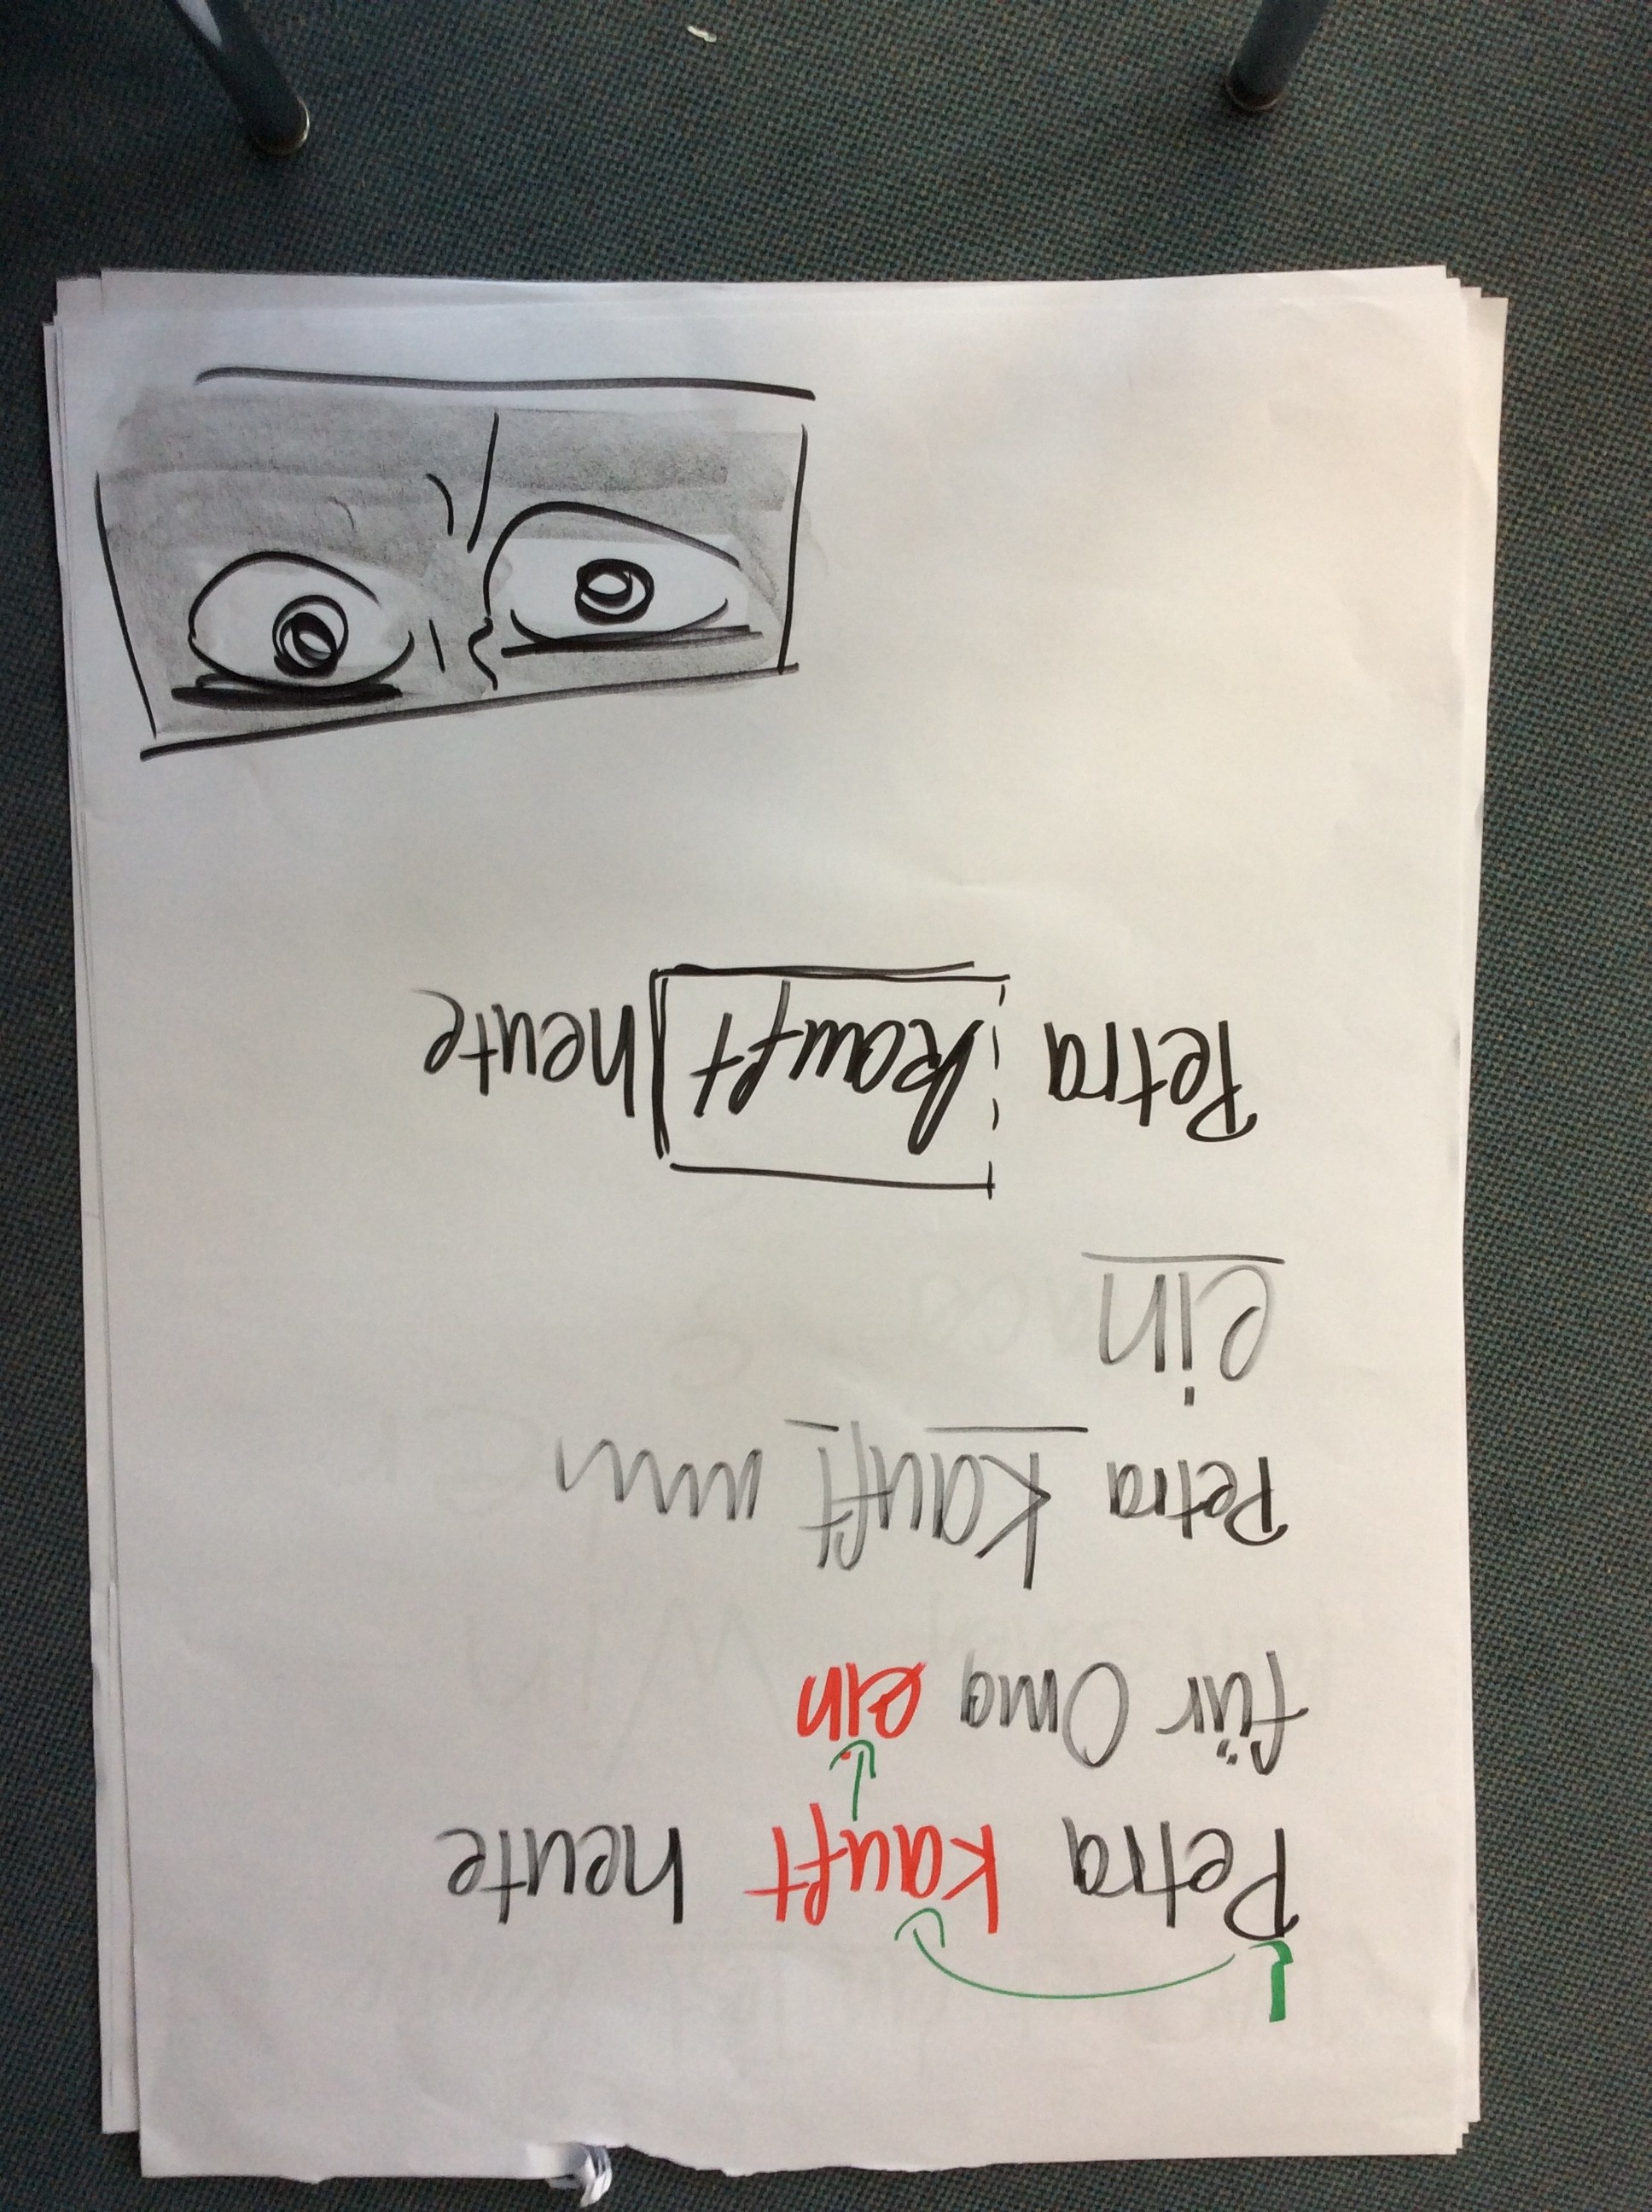 Petra kauft heute
für Oma ein
Petra kauft
ein
Petra kauft heute